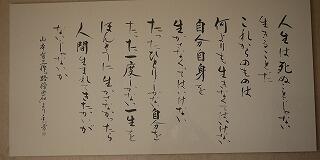 人生は死ぬことじゃない
生きることだ
これからのものは
何よりも生きなくてはいけない
自分自身を
生かさなくてはいけない
たったひとりしかない自分を
たった一度しかない一生を
ほんとうに生かさなかったら
人間生まれてきたかいが
ないじゃないか
山本有三